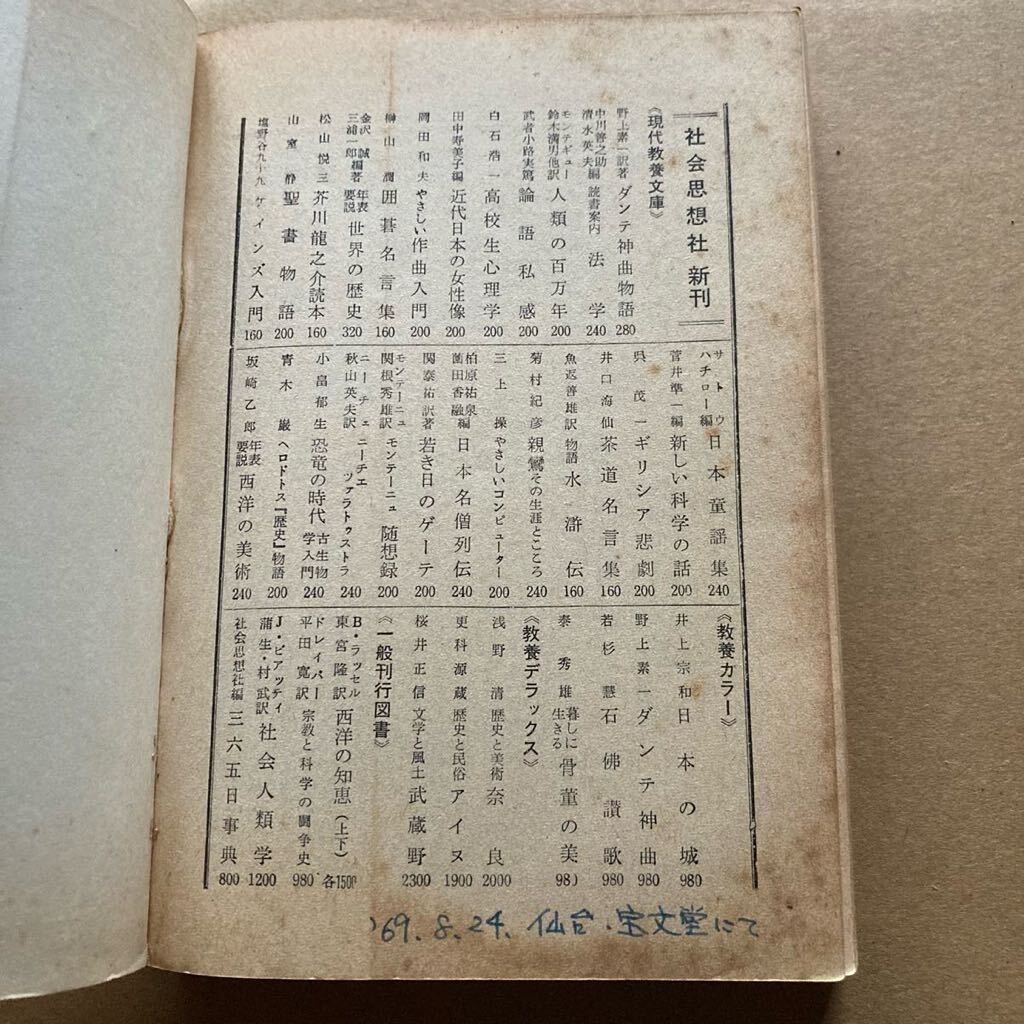 社会思想社 新刊
《現代教養文庫》
野上素一訳著 ダンテ神曲物語 280
中川善之助 清水英夫編 読書案内 法学 240
モンテギュー 鈴木満男他訳 人類の百万年 200
武者小路実篤 論語私感 200
白石浩一 高校生心理学 200
田中寿美子編 近代日本の女性像 200
岡田和夫 やさしい作曲入門 200
榊山潤 囲碁名言集 160
金沢誠 三浦一郎編著 年表要説 世界の歴史 320
松山悦三 芥川龍之介読本 160
山室静 聖書物語 200
塩野谷九十九 ケインズ入門 160
サトウハチロー編 日本童謡集 240
菅井準一編 新しい科学の話 200
呉茂一 ギリシア悲劇 200
井口海仙 茶道名言集 160
魚返善雄訳 物語 水滸伝 160
菊村紀彦 親鸞その生涯とこころ 240
三上操 やさしいコンピューター 200
柏原祐泉 薗田香融編 日本名僧列伝 240
関泰祐訳著 若き日のゲーテ 200
モンテーニュ 関根秀雄訳 モンテーニュ 随想録 200
ニーチェ 秋山英夫訳 ニーチェ ツァラトゥストラ 240
小畠郁生 恐竜の時代 古生物学入門 240
青木巌 ヘロドトス『歴史』物語 200
坂崎乙郎 年表要説 西洋の美術 240
《教養カラー》
井上宗和 日本の城 980
野上素一 ダンテ神曲 980
若杉慧 石佛讃歌 980
秦秀雄 暮しに生きる 骨董の美 980
《教養デラックス》
浅野清 歴史と美術 奈良 2000
更科源蔵 歴史と民俗 アイヌ 1900
桜井正信 文学と風土 武蔵野 2300
《一般刊行図書》
B・ラッセル 東宮隆訳 西洋の知恵(上下) 各1500
ドレイパー 平田寛訳 宗教と科学の闘争史 980
J・ビアッティ 蒲生・村武訳 社会人類学 1200
社会思想社編 三六五日事典 800
'69.8.24. 仙台・宝文堂にて